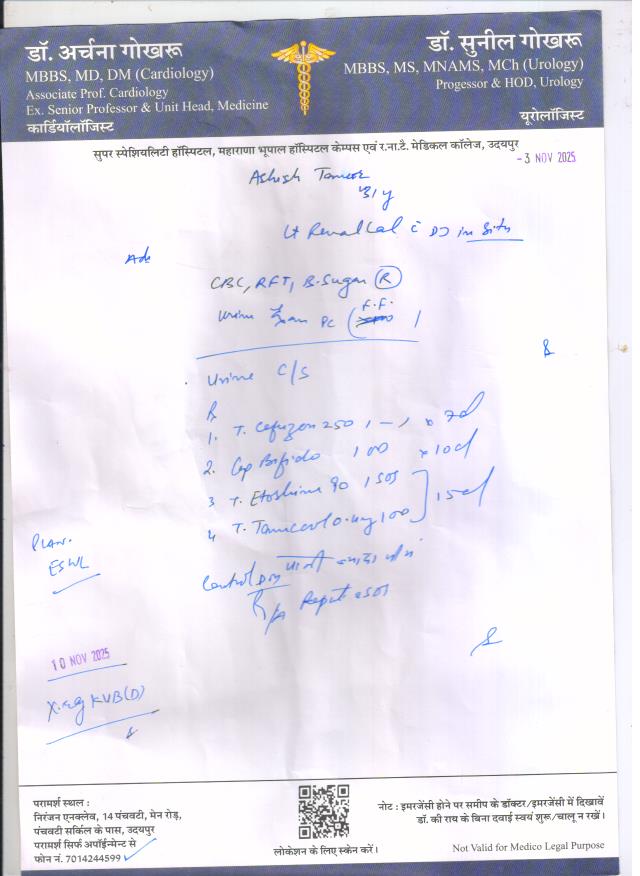 डॉ. अर्चना गोखरू
MBBS, MD, DM (Cardiology)
Associate Prof. Cardiology
Ex. Senior Professor & Unit Head, Medicine
कार्डियॉलॉजिस्ट
डॉ. सुनील गोखरू
MBBS, MS, MNAMS, MCh (Urology)
Progessor & HOD, Urology
यूरोलॉजिस्ट
सुपर स्पेशियलिटी हॉस्पिटल, महाराणा भूपाल हॉस्पिटल केम्पस एवं र.ना.टै. मेडिकल कॉलेज, उदयपुर
-3 NOV 2025
Ashish
Lt Renal Cal c̄ DJ in Situ
Adv
CBC, RFT, B. Sugar (R)
Urine PC (F.F.
Urine C/S
R
1. T. 250 1-1 x 7d
2. Cap Bifido 100 x 10d
3 T. Etoshine 90 1 SOS
4 T. 100
15d
PLAN.
ESWL
Control पानी ज्यादा
R/A Repeat SOS
10 NOV 2025
X-ray KUB (D)
परामर्श स्थल :
निरंजन एनक्लेव, 14 पंचवटी, मेन रोड़,
पंचवटी सर्किल के पास, उदयपुर
परामर्श सिर्फ अपॉईन्मेन्ट से
फोन नं. 7014244599
लोकेशन के लिए स्केन करें।
नोट : इमरजेंसी होने पर समीप के डॉक्टर/इमरजेंसी में दिखावें
डॉ. की राय के बिना दवाई स्वयं शुरू/चालू न रखें।
Not Valid for Medico Legal Purpose